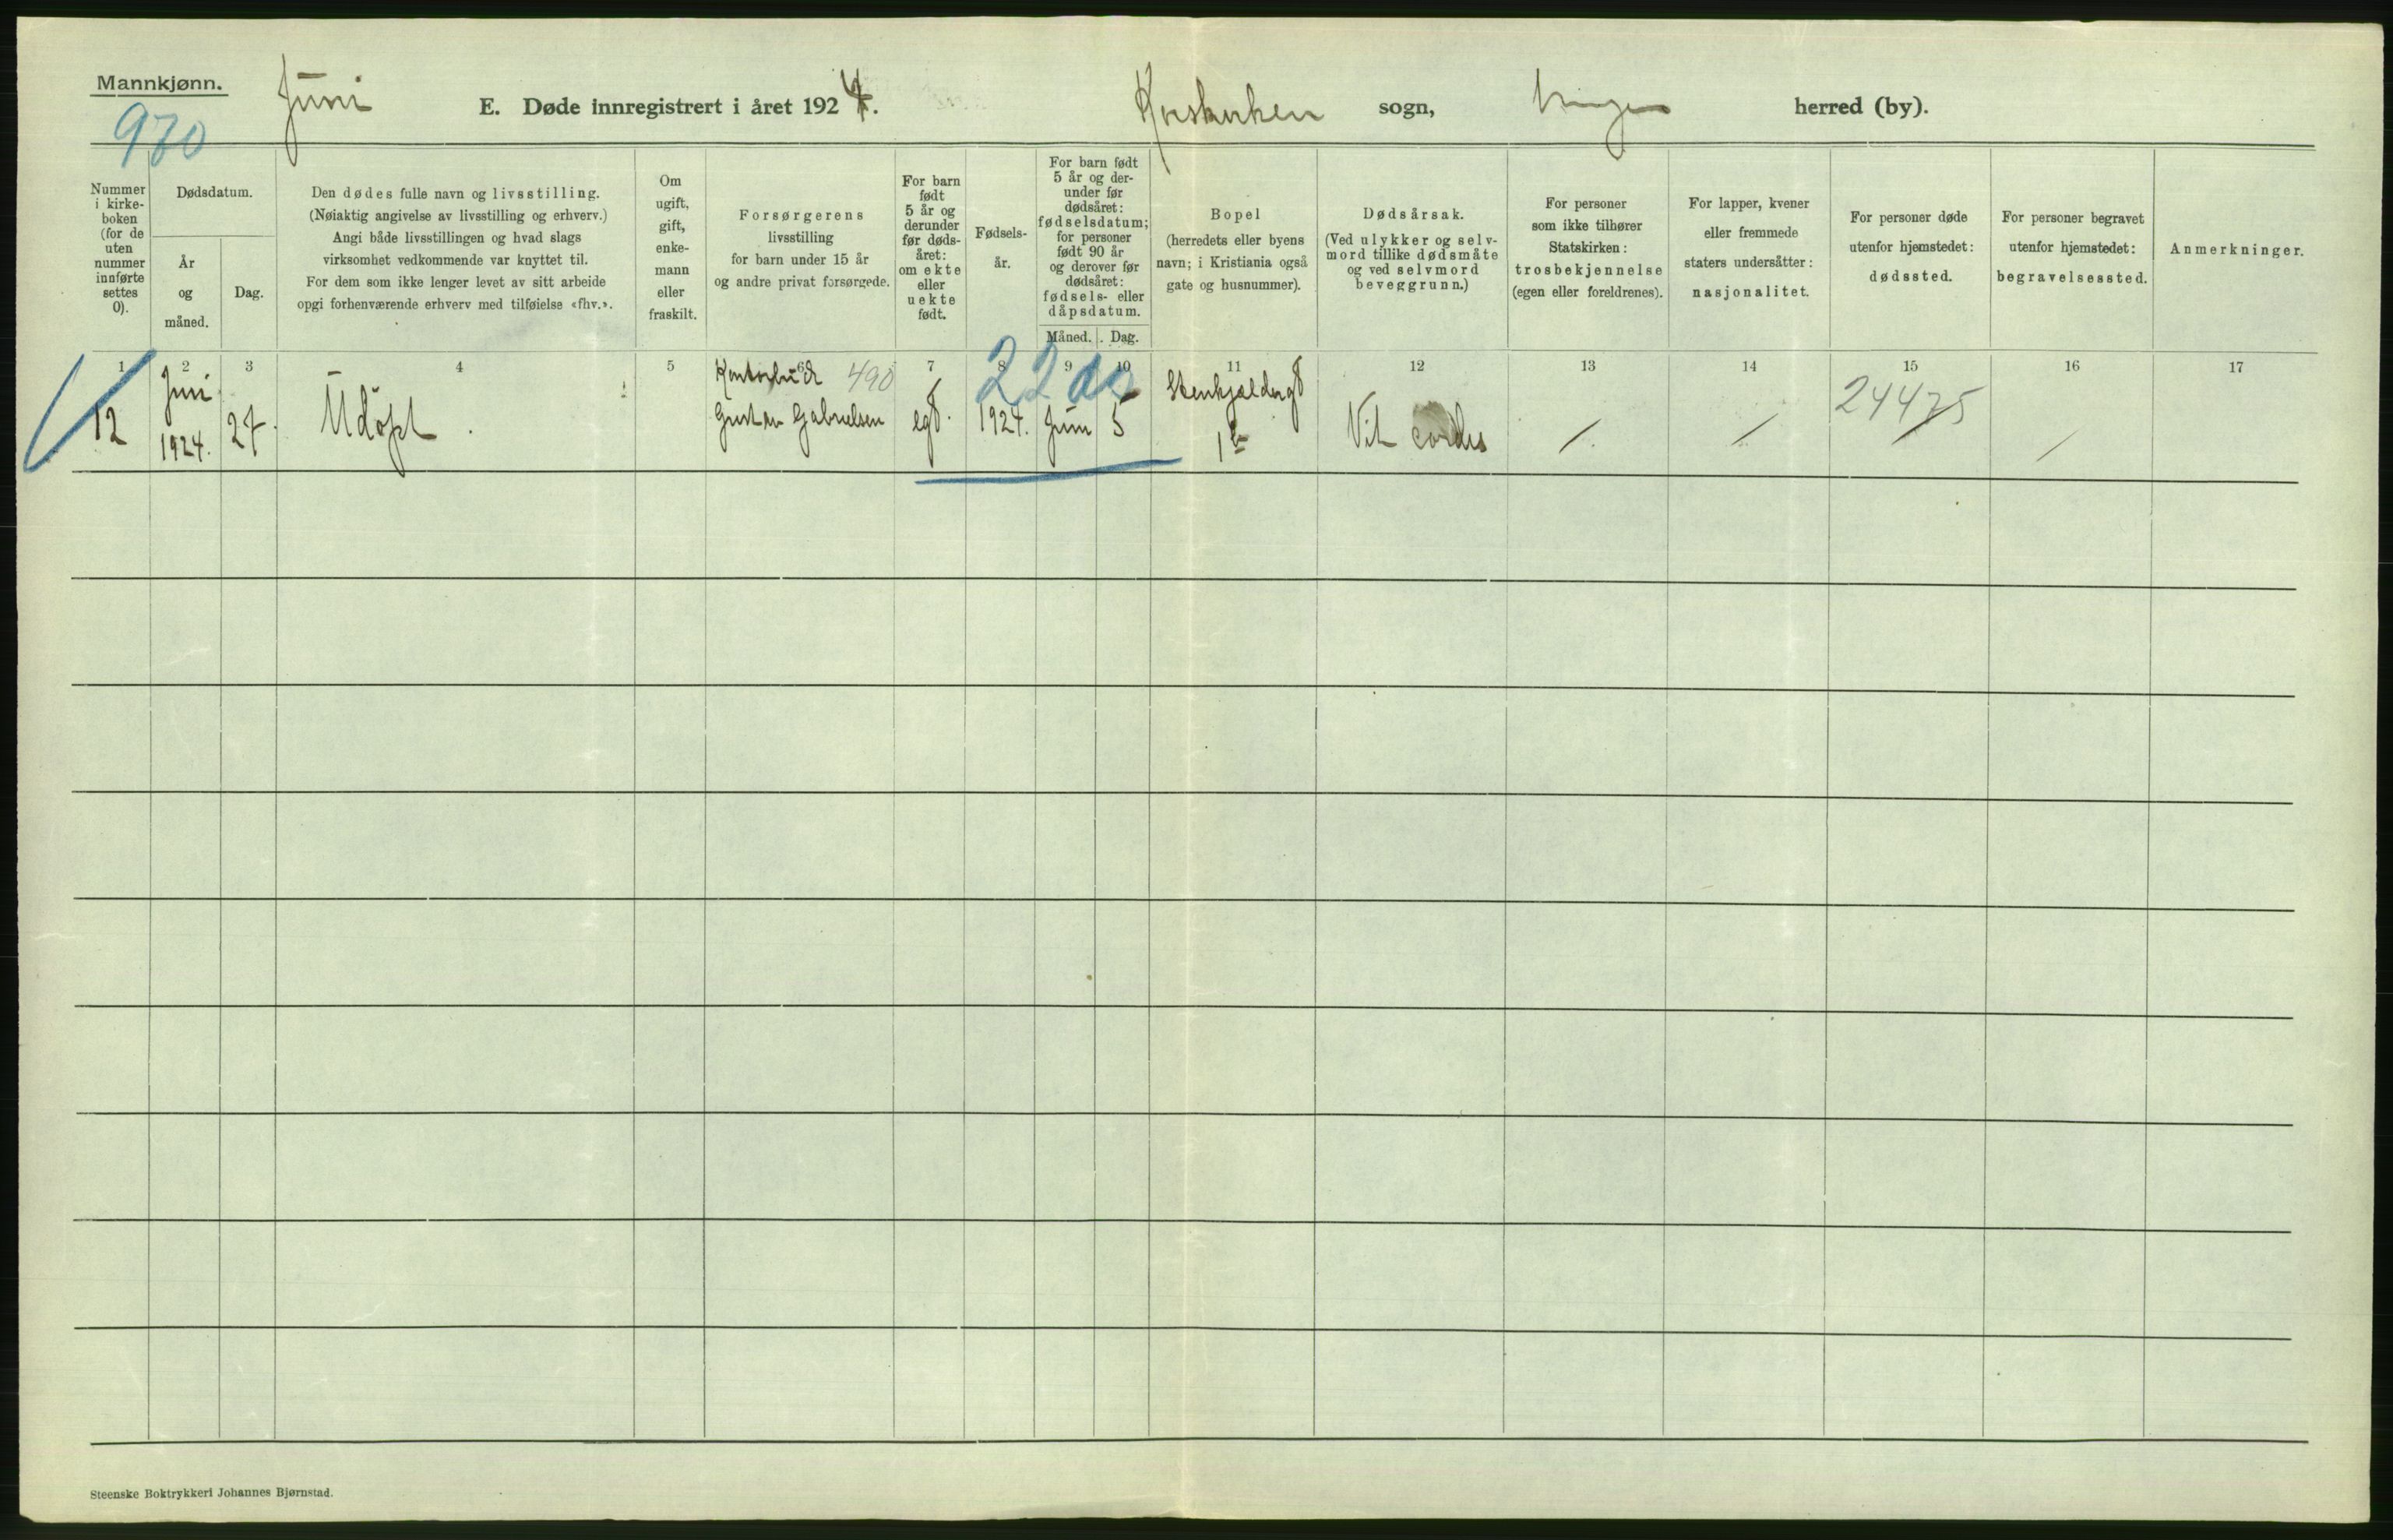 Mannkjønn.
Juni
E. Døde innregistrert i året 1924.
Korskirken sogn,
herred (by).
970
Nummer
i kirke-
boken
(for de
uten
nummer
innførte
settes
0).
Dødsdatum.
År
og
måned.
Dag.
Den dødes fulle navn og livsstilling.
(Nøiaktig angivelse av livsstilling og erhverv.)
Angi både livsstillingen og hvad slags
virksomhet vedkommende var knyttet til.
For dem som ikke lenger levet av sitt arbeide
opgi forhenværende erhverv med tilføielse «fhv.».
Om
ugift,
gift,
enke-
mann
eller
fraskilt.
Forsørgerens
livsstilling
for barn under 15 år
og andre privat forsørgede.
For barn
født
5 år og
derunder
før døds-
året:
om ekte
eller
uekte
født.
Fødsels-
år.
For barn født
5 år og der-
under før
dødsåret:
fødselsdatum;
for personer
født 90 år
og derover før
dødsåret:
fødsels- eller
dåpsdatum.
Måned. Dag.
Bopel
(herredets eller byens
navn; i Kristiania også
gate og husnummer).
Dødsårsak.
(Ved ulykker og selv-
mord tillike dødsmåte
og ved selvmord
beveggrunn.)
For personer
som ikke tilhører
Statskirken:
trosbekjennelse
(egen eller foreldrenes).
For lapper, kvener
eller fremmede
staters undersåtter:
nasjonalitet.
For personer døde
utenfor hjemstedet:
dødssted.
For personer begravet
utenfor hjemstedet:
begravelsessted.
Anmerkninger.
1 2 3 4 5 6 7 8 9 10 11 12 13 14 15 16 17
Juni Kontorbud 490 22 Stenkjeldergt 24475
12 1924. 27. Udøpt. Gabrielsen egt. 1924. Juni 5 1 b Vit cordis / / / /
Steenske Boktrykkeri Johannes Bjørnstad.